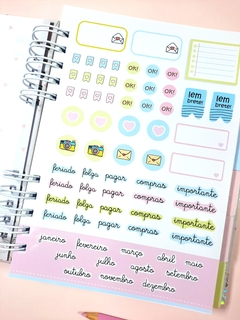 OK! OK! OK!
OK! OK! OK!
OK! OK! OK!
lem brete! lem brete!
feriado folga pagar compras importante
feriado folga pagar compras importante
feriado folga pagar compras importante
feriado folga pagar compras importante
janeiro fevereiro março abril maio
junho julho agosto setembro
outubro novembro dezembro